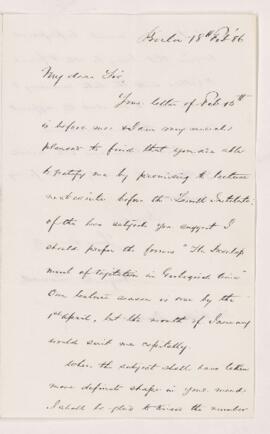 Boston 18th Feb '86
My dear Sir,
Your letter of Feb 16th
is before me & I am very much
pleased to find that you are able
to gratify me by promising to lecture
next winter before the Lowell Institute
of the two subjects you suggest I
should prefer the former "The Develop
ment of Vegetation in Geological time"
Our lecture season is over by the
1st April, but the month of January
would suit me capitally.
When the subject shall have taken
more definite shape in your mind,
I shall be glad to know the number